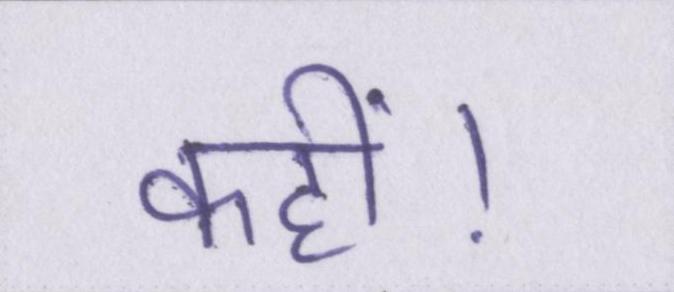 कहीं!